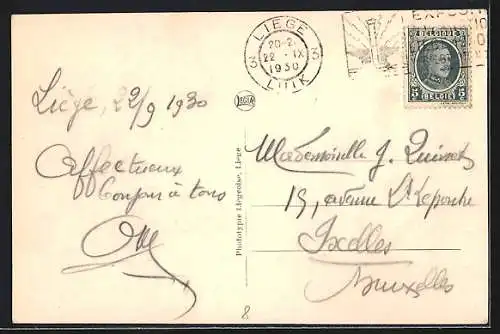 LIEGE
3 20-21 3
22 - IX
1930
LUIK
EXPOSI
BELGIQUE
5 5
BELGIË
LEGIA
Liège, 22/9 1930
Affectueux
bonjour à tous
Phototypie Liégeoise, Liège
Mademoiselle J.
19, avenue
Ixelles
Bruxelles
8